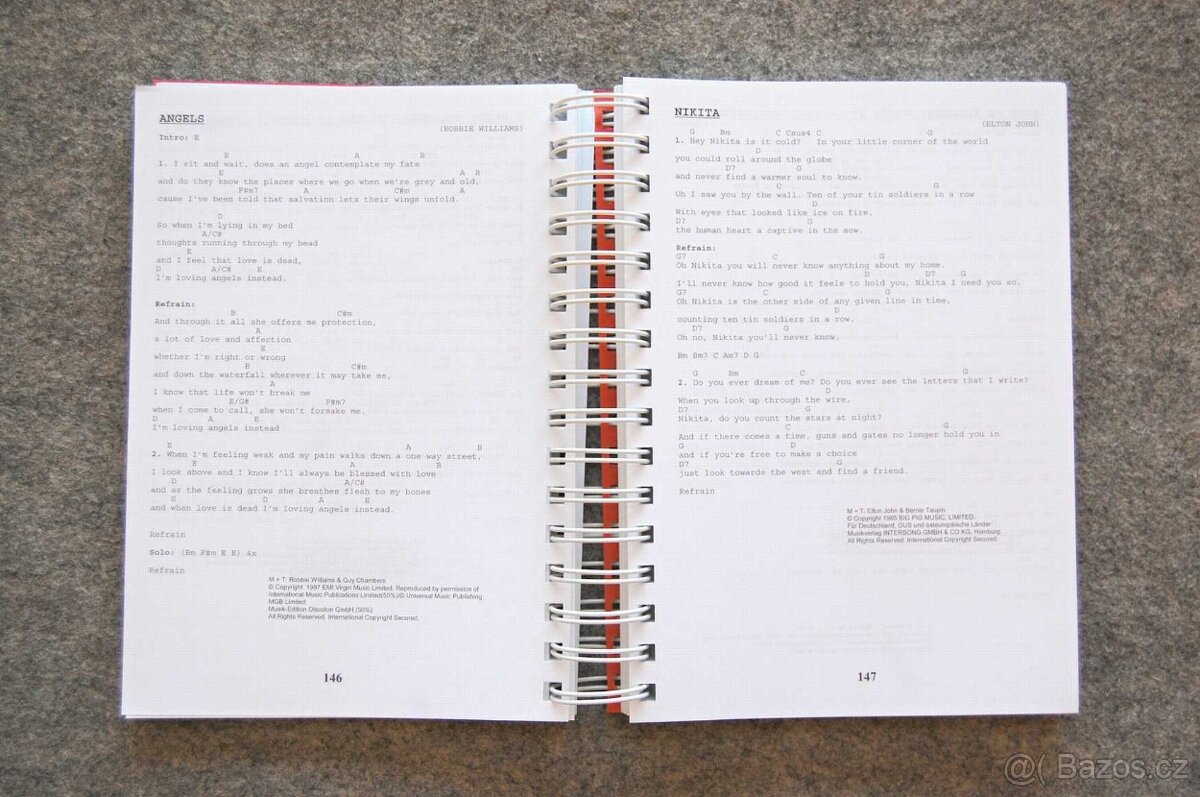 ANGELS
(ROBBIE WILLIAMS)
Intro: E
E A B
1. I sit and wait, does an angel contemplate my fate
E A B
and do they know the places where we go when we're grey and old,
F#m7 A C#m A
cause I've been told that salvation lets their wings unfold.
D
So when I'm lying in my bed
A/C#
thoughts running through my head
E
and I feel that love is dead,
D A/C# E
I'm loving angels instead.
Refrain:
B C#m
And through it all she offers me protection,
A
a lot of love and affection
E
whether I'm right or wrong
B C#m
and down the waterfall wherever it may take me,
A
I know that life won't break me
E/G# F#m7
when I come to call, she won't forsake me.
D A E
I'm loving angels instead
E A B
2. When I'm feeling weak and my pain walks down a one way street,
E A B
I look above and I know I'll always be blessed with love
D A/C#
and as the feeling grows she breathes flesh to my bones
E D A E
and when love is dead I'm loving angels instead.
Refrain
Solo: (Bm F#m E E) 4x
Refrain
M + T: Robbie Williams & Guy Chambers
© Copyright 1997 EMI Virgin Music Limited. Reproduced by permission of
International Music Publications Limited(50%)/© Universal Music Publishing
MGB Limited
Musik-Edition Discoton GmbH (50%).
All Rights Reserved. International Copyright Secured.
146
NIKITA
(ELTON JOHN)
G Bm C Csus4 C G
1. Hey Nikita is it cold? In your little corner of the world
D
you could roll around the globe
D7 G
and never find a warmer soul to know.
C G
Oh I saw you by the wall. Ten of your tin soldiers in a row
D
With eyes that looked like ice on fire,
D7 G
the human heart a captive in the sow.
Refrain:
G7 C G
Oh Nikita you will never know anything about my home.
D D7 G
I'll never know how good it feels to hold you, Nikita I need you so,
G7 C G
Oh Nikita is the other side of any given line in time,
D
counting ten tin soldiers in a row.
D7 G
Oh no, Nikita you'll never know.
Bm Bm7 C Am7 D G
G Bm C G
2. Do you ever dream of me? Do you ever see the letters that I write?
D
When you look up through the wire,
D7 G
Nikita, do you count the stars at night?
C G
And if there comes a time, guns and gates no longer hold you in
G D
and if you're free to make a choice
D7 G
just look towards the west and find a friend.
Refrain
M + T: Elton John & Bernie Taupin
© Copyright 1985 BIG PIG MUSIC. LIMITED.
Für Deutschland, GUS und osteuropäische Länder:
Musikverlag INTERSONG GMBH & CO KG, Hamburg.
All Rights Reserved. International Copyright Secured.
147
@( Bazos.cz